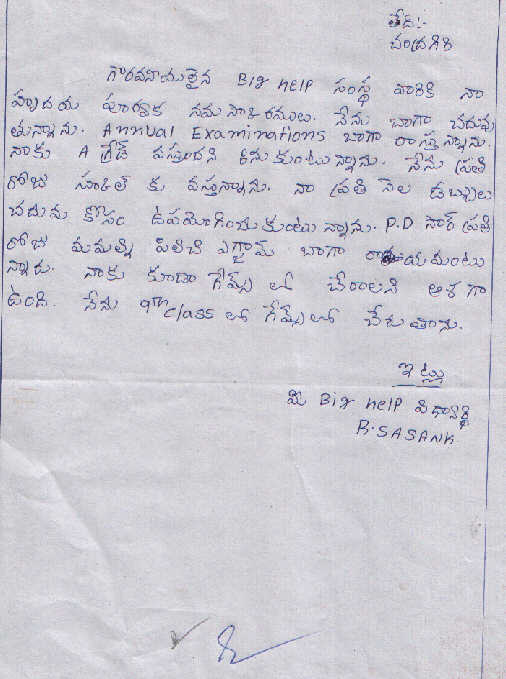 తేది:-
చంద్రగిరి
గౌరవనీయులైన Big HELP సంస్థ వారికి నా
హృదయ పూర్వక నమస్కారములు. నేను బాగా చదువు
తున్నాను. Annual Examinations బాగా రాస్తున్నాను.
నాకు A గ్రేడ్ వస్తుందని అనుకుంటున్నాను. నేను ప్రతి
రోజు స్కూల్ కు వస్తున్నాను. నా ప్రతి నెల డబ్బులు
చదువు కోసం ఉపయోగించుకుంటున్నాను. P.D సార్ ప్రతి
రోజు మమల్ని పిలిచి ఎగ్జామ్ బాగా రాయమంటు
న్నారు. నాకు కూడా గేమ్స్ లో చేరాలని ఆశ గా
ఉంది. నేను 9th class లో గేమ్స్ లో చేరుతాను.
ఇట్లు
మీ Big HELP విద్యార్థి
R. SASANK